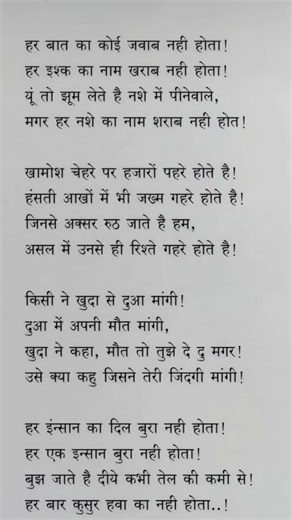 हर बात का कोई जवाब नही होता!
हर इश्क का नाम खराब नही होता!
यूं तो झूम लेते है नशे में पीनेवाले,
मगर हर नशे का नाम शराब नही होत!
खामोश चेहरे पर हजारों पहरे होते है!
हंसती आखों में भी जख्म गहरे होते है!
जिनसे अक्सर रुठ जाते है हम,
असल में उनसे ही रिश्ते गहरे होते है!
किसी ने खुदा से दुआ मांगी!
दुआ में अपनी मौत मांगी,
खुदा ने कहा, मौत तो तुझे दे दु मगर!
उसे क्या कहु जिसने तेरी जिंदगी मांगी!
हर इंन्सान का दिल बुरा नही होता!
हर एक इन्सान बुरा नही होता!
बुझ जाते है दीये कभी तेल की कमी से!
हर बार कुसुर हवा का नही होता..!